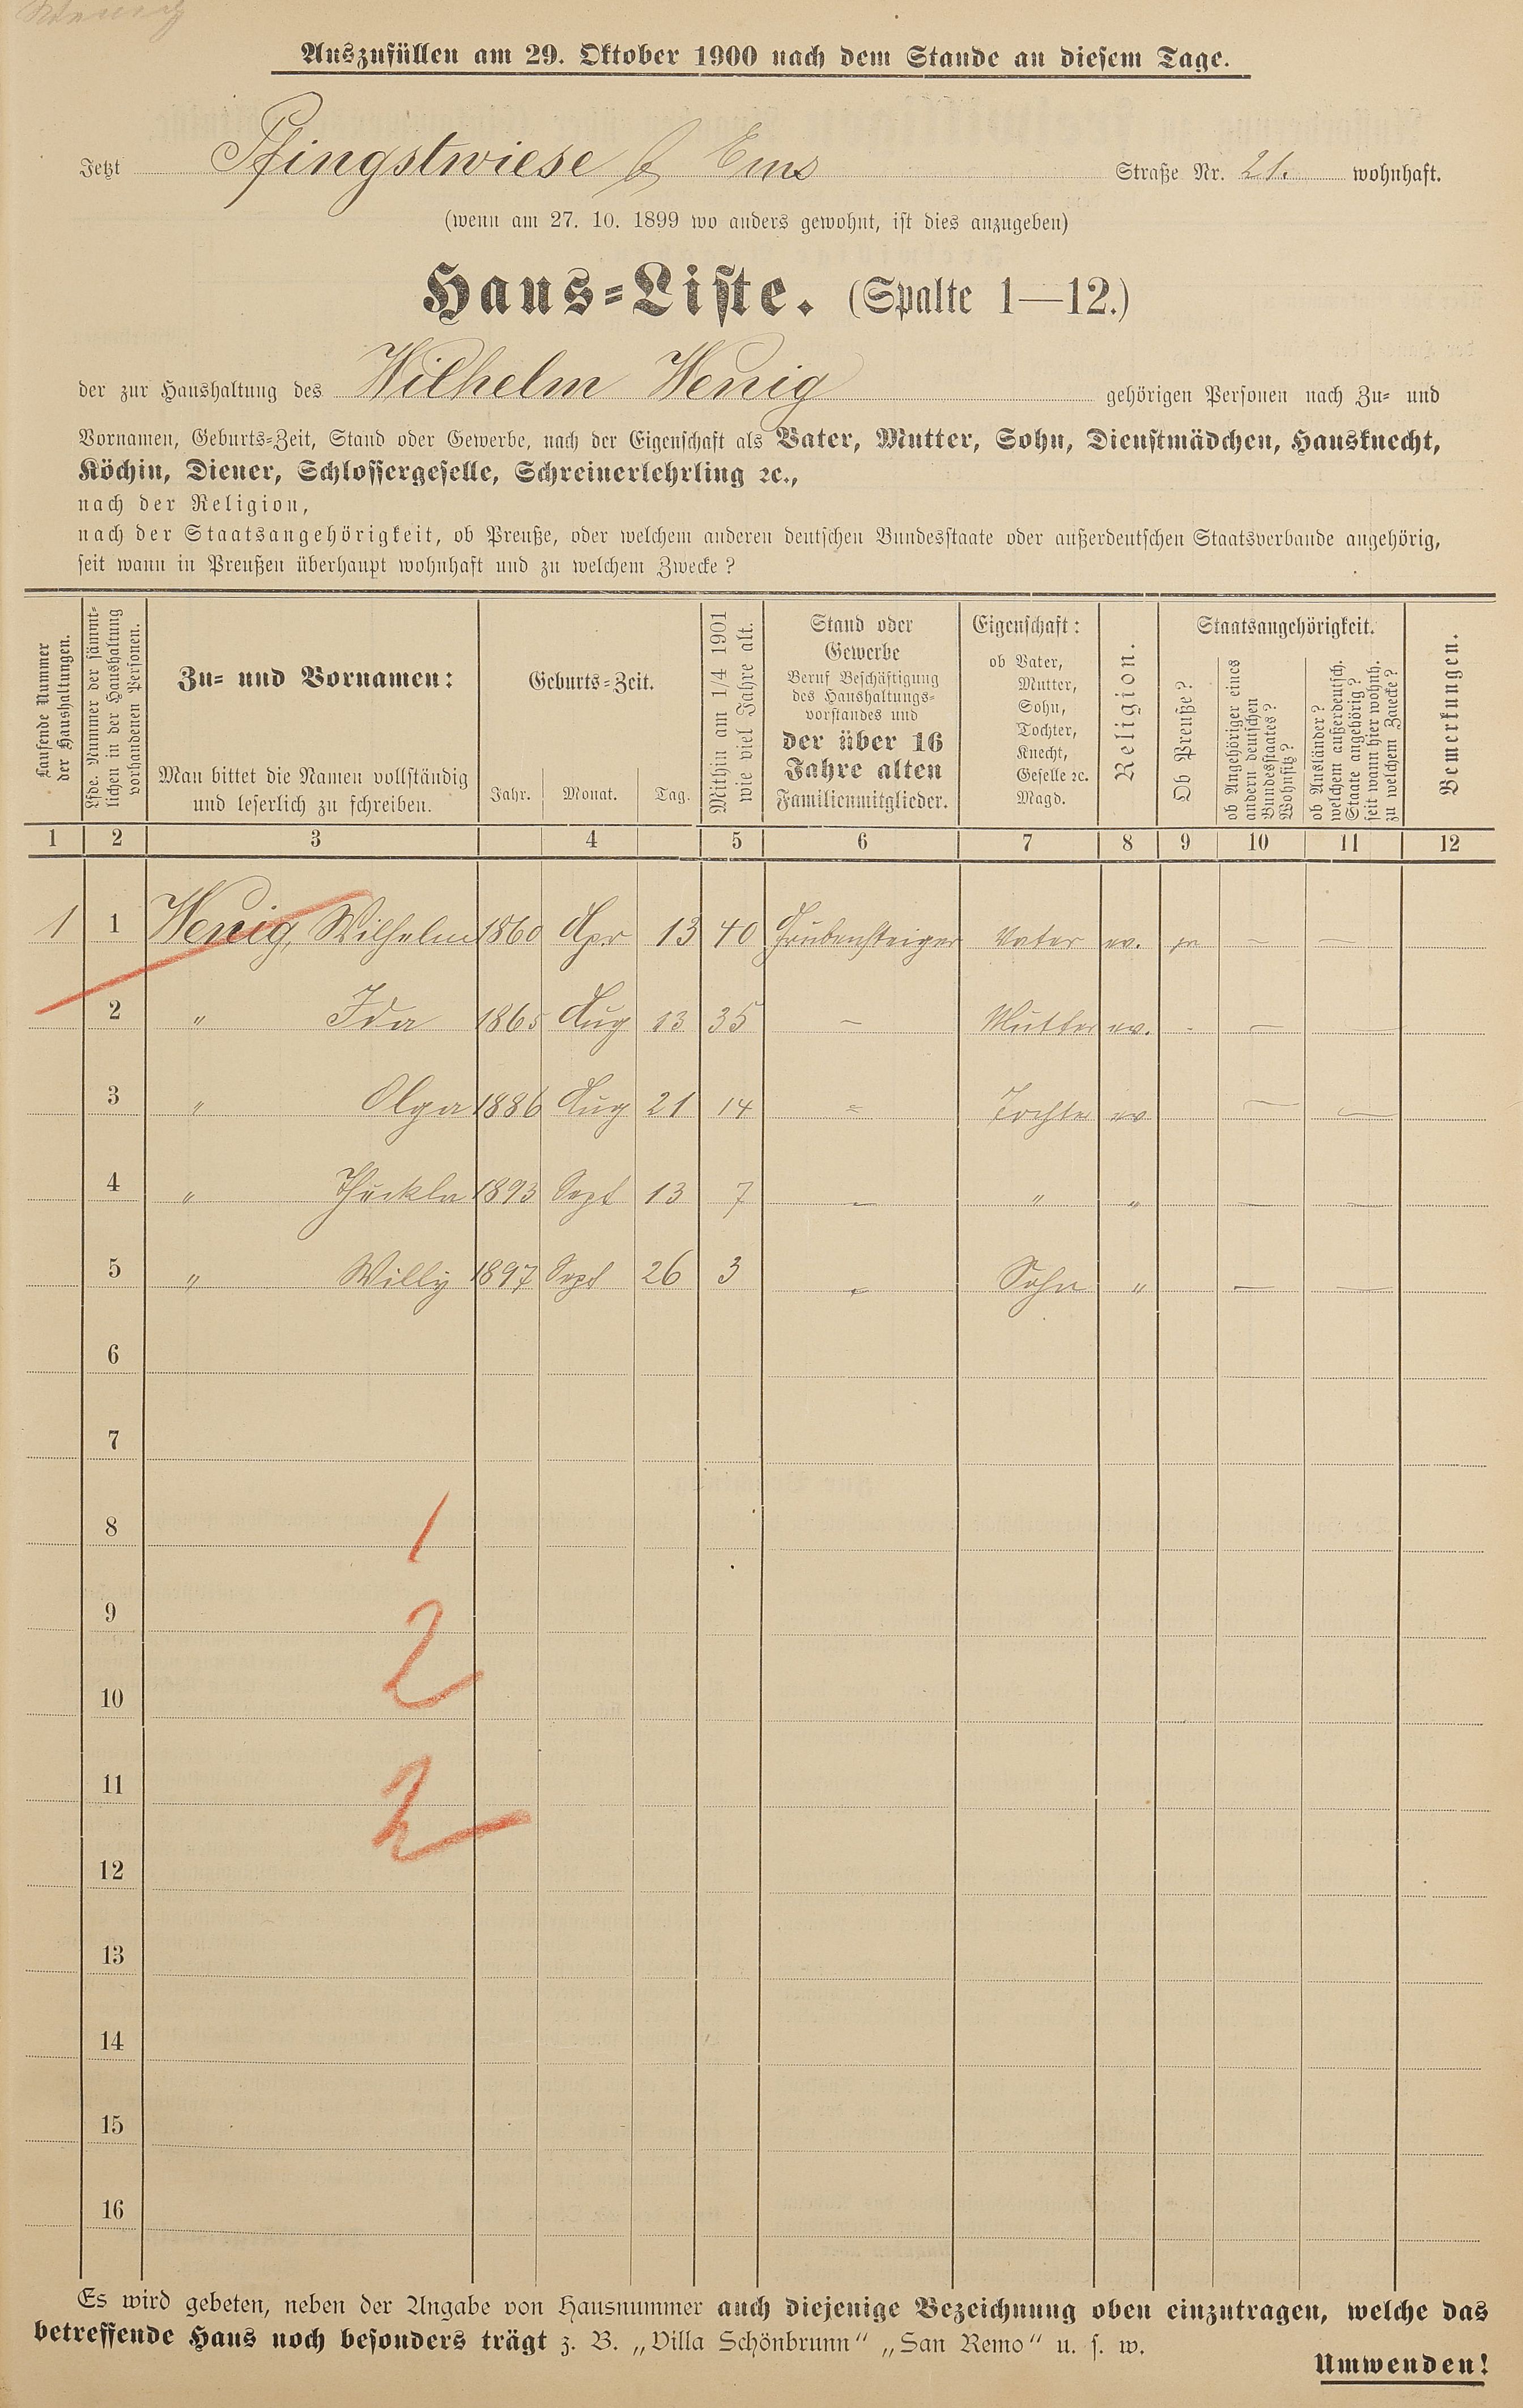 Wenig
Auszufüllen am 29. Oktober 1900 nach dem Stande an diesem Tage.
Jetzt Pfingstwiese b Ems Straße Nr. 21. wohnhaft.
(wenn am 27. 10. 1899 wo anders gewohnt, ist dies anzugeben)
Haus-Liste. (Spalte 1—12.)
der zur Haushaltung des Wilhelm Wenig gehörigen Personen nach Zu- und
Vornamen, Geburts-Zeit, Stand oder Gewerbe, nach der Eigenschaft als Vater, Mutter, Sohn, Dienstmädchen, Hausknecht,
Köchin, Diener, Schlossergeselle, Schreinerlehrling ꝛc.,
nach der Religion,
nach der Staatsangehörigkeit, ob Preuße, oder welchem anderen deutschen Bundesstaate oder außerdeutschen Staatsverbande angehörig,
seit wann in Preußen überhaupt wohnhaft und zu welchem Zwecke?
Laufende Nummer
der Haushaltungen.
Lfde. Nummer der sämmt-
lichen in der Haushaltung
vorhandenen Personen.
Zu- und Vornamen:
Man bittet die Namen vollständig
und leserlich zu schreiben.
Geburts-Zeit.
Jahr. Monat. Tag.
Mithin am 1/4 1901
wie viel Jahre alt.
Stand oder
Gewerbe
Beruf Beschäftigung
des Haushaltungs-
vorstandes und
der über 16
Jahre alten
Familienmitglieder.
Eigenschaft:
ob Vater,
Mutter,
Sohn,
Tochter,
Knecht,
Geselle ꝛc.
Magd.
Religion.
Staatsangehörigkeit.
Ob Preuße?
ob Angehöriger eines
andern deutschen
Bundesstaates?
Wohnsitz?
ob Ausländer?
welchem außerdeutsch.
Staate angehörig?
seit wann hier wohnh.
zu welchem Zwecke?
Bemerkungen.
1 2 3 4 5 6 7 8 9 10 11 12
1 1 Wenig, Wilhelm 1860 Apr 13 40 Grubensteiger Vater ev. ja — —
2 " Ida 1865 Aug 13 35 — Mutter ev. - — —
3 " Olga 1886 Aug 21 14 — Tochter ev — —
4 " Theckla 1893 Sept 13 7 — " " — —
5 " Willy 1897 Sept 26 3 — Sohn " — —
6
7
8 1
9 2
10
11 2
12
13
14
15
16
Es wird gebeten, neben der Angabe von Hausnummer auch diejenige Bezeichnung oben einzutragen, welche das
betreffende Haus noch besonders trägt z. B. „Villa Schönbrunn" „San Remo" u. s. w.
Umwenden!